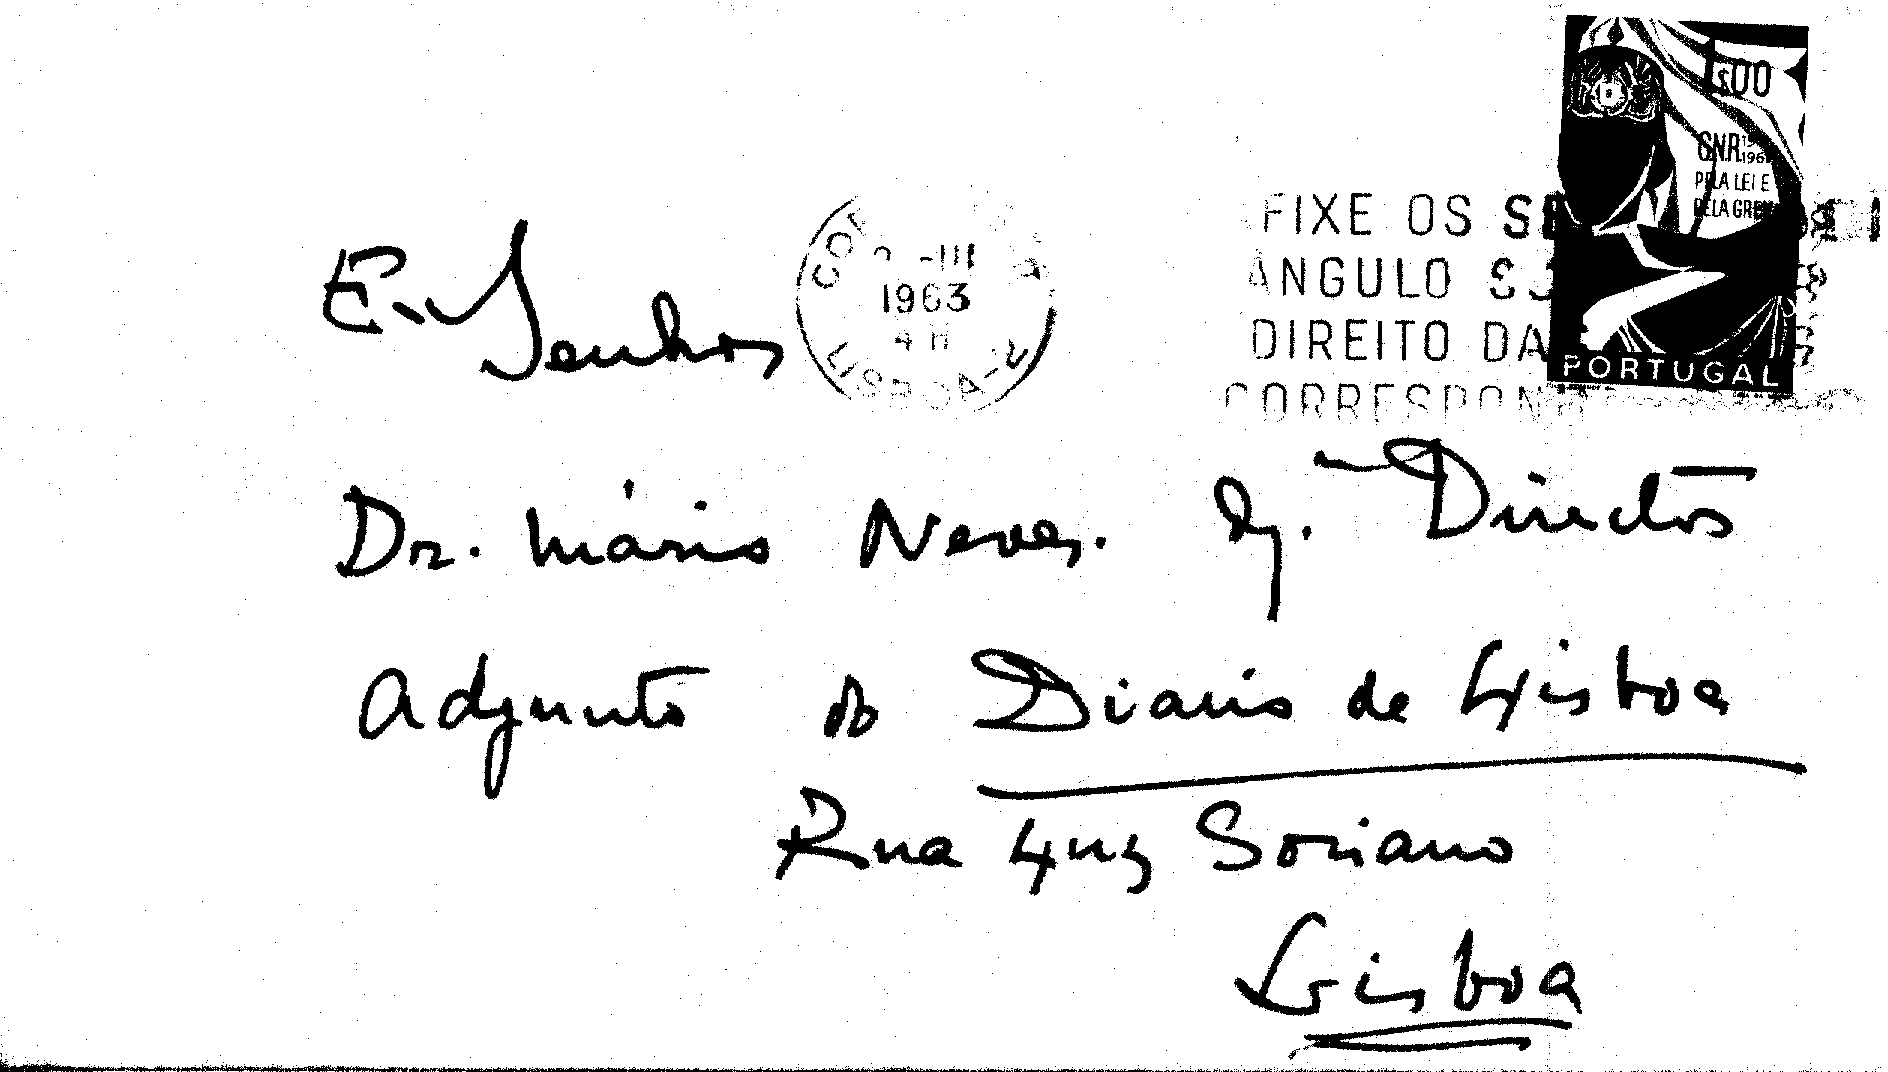 1$00
G.N.R.
PELA LEI E
PELA GREI
PORTUGAL
FIXE OS
ÂNGULO
DIREITO DA
CORRESPON
-III
1963
LISBOA-2
Ex. Senhor
Dr. Mário Neves. Dg. Director
Adjunto do Diario de Lisboa
Rua Luz Soriano
Lisboa